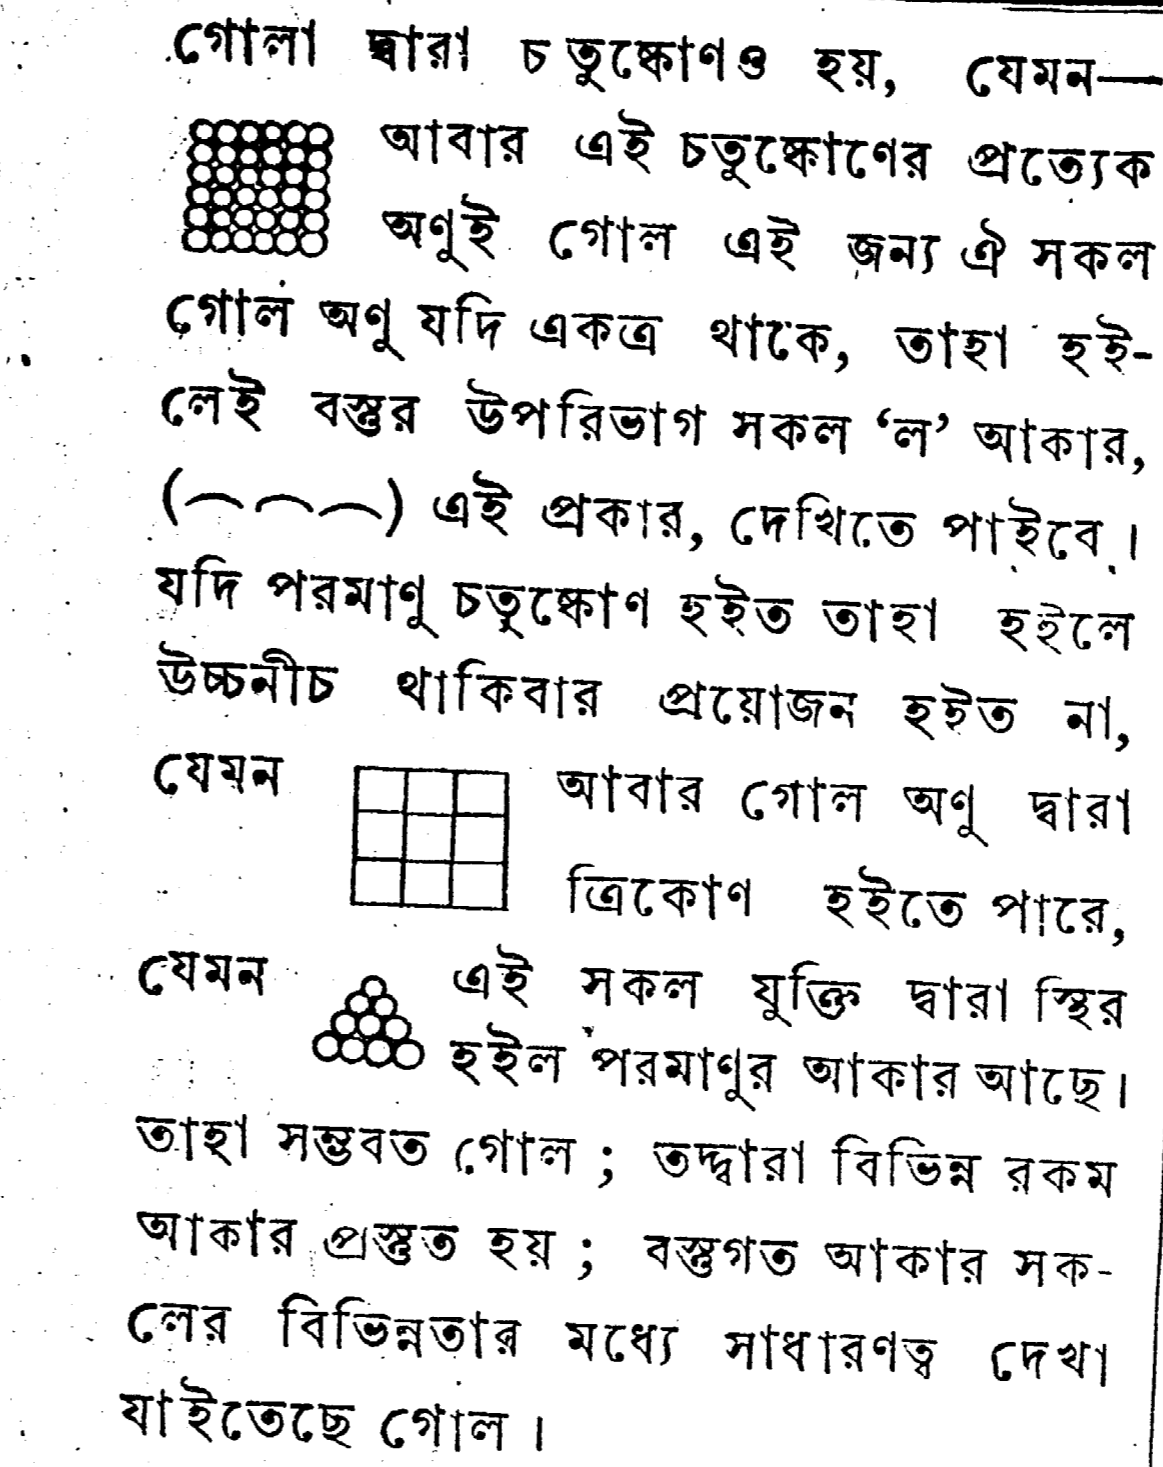 গোলা দ্বারা চতুষ্কোণও হয়, যেমন—
আবার এই চতুষ্কোণের প্রত্যেক
অণুই গোল এই জন্য ঐ সকল
গোল অণু যদি একত্র থাকে, তাহা হই-
লেই বস্তুর উপরিভাগ সকল ‘ল’ আকার,
(⌒⌒⌒) এই প্রকার, দেখিতে পাইবে।
যদি পরমাণু চতুষ্কোণ হইত তাহা হইলে
উচ্চনীচ থাকিবার প্রয়োজন হইত না,
যেমন আবার গোল অণু দ্বারা
ত্রিকোণ হইতে পারে,
যেমন এই সকল যুক্তি দ্বারা স্থির
হইল পরমাণুর আকার আছে।
তাহা সম্ভবত গোল ; তদ্দ্বারা বিভিন্ন রকম
আকার প্রস্তুত হয় ; বস্তুগত আকার সক-
লের বিভিন্নতার মধ্যে সাধারণত্ব দেখা
যাইতেছে গোল।